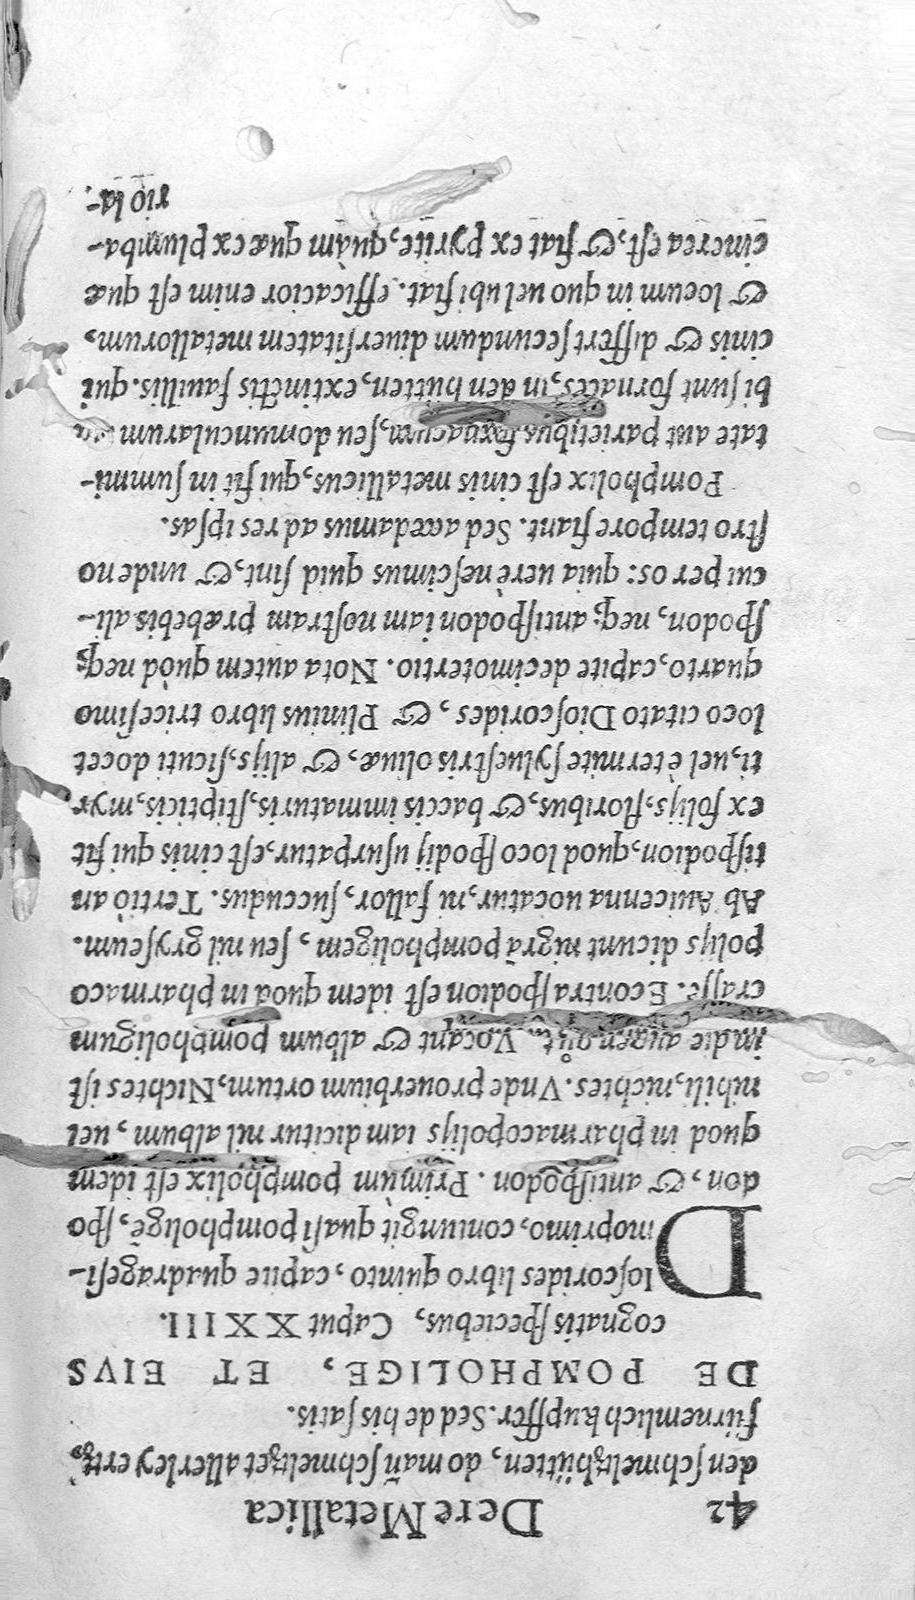 42 De re Metallica
den schmeltzhütten, do mañ schmeltzet allerley ertz,
fürnemlich kupffer. Sed de his satis.
DE POMPHOLIGE, ET EIVS
cognatis speciebus, Caput XXIII.
Dioscorides libro quinto, capite quadragesi-
moprimo, coniungit quasi pompholigē, spo
don, & antispodon. Primùm pompholix est idem
quod in pharmacopolijs iam dicitur nil album, uel
nihili, nichtes. Vnde prouerbium ortum, Nichtes ist
indie augen gůt. Vocant & album pompholigum
crasse. Econtra spodion est idem quod in pharmaco
polijs dicunt nigrā pompholigem, seu nil gryseum.
Ab Auicenna uocatur, ni fallor, succudus. Tertiò an
tispodion, quod loco spodij usurpatur, est cinis qui fit
ex folijs, floribus, & baccis immaturis, stipticis, myr
ti, uel è termite syluestris oliuæ, & alijs, sicuti docet
loco citato Dioscorides, & Plinius libro tricesimo
quarto, capite decimotertio. Nota autem quòd neq;
spodon, neq; antispodon iam nostram præbebis ali-
cui per os: quia uerè nescimus quid sint, & unde no
stro tempore fiant. Sed accedamus ad res ipsas.
Pompholix est cinis metallicus, qui fit in summi-
tate aut parietibus fornacum, seu domuncularum
bi sunt fornaces, in den hütten, extinctis fauillis. qui
cinis & differt secundum diuersitatem metallorum,
& locum in quo uel ubi fiat. efficacior enim est quæ
cinerea est, & fiat ex pyrite, quàm quæ ex plumba-
rio la-